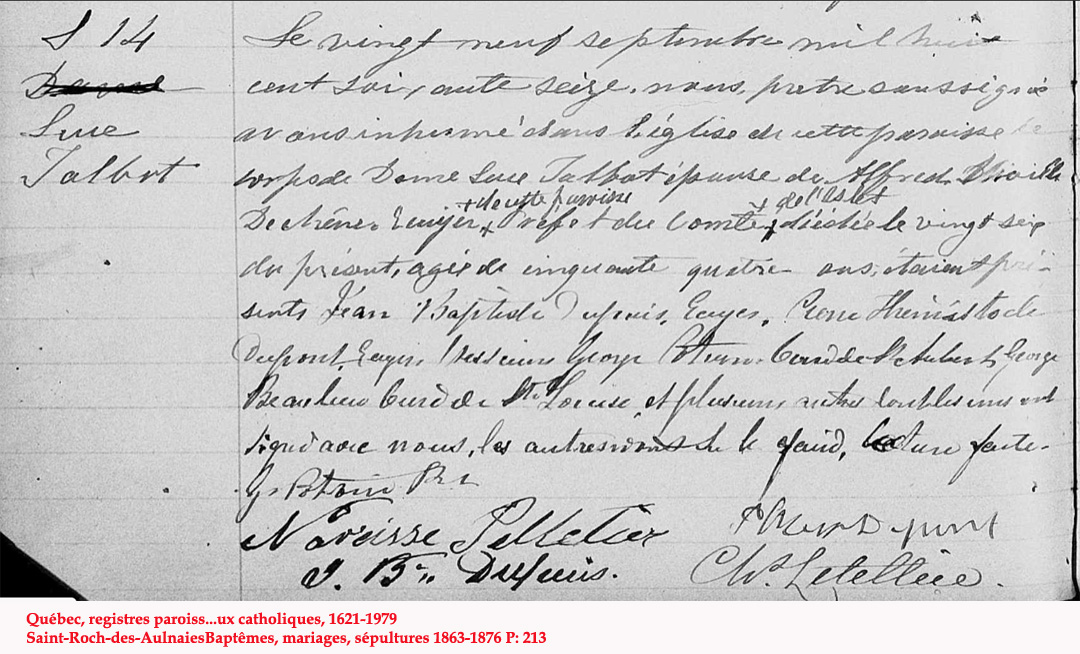 S 14
Dame
Luce
Talbot
Le vingt neuf septembre mil huit
cent soixante seize, nous, pretre soussigné
avons inhumé dans l'église de cette paroisse le
corps de Dame Luce Talbot épouse de Alfred
+ de cette paroisse + de l'Islet
Dechêne Ecuyer, + Préfet du Comté, + décédée le vingt six
du présent, agée de cinquante quatre ans, étaient pré-
sents Jean Baptiste Dupuis, Ecuyer, Pierre Thémistocle
Dupont, Ecuyer, Messieurs George Potvin Curé de St Aubert, George
Beaulieu Curé de Ste Louise, et plusieurs autres lesquels ont
signé avec nous, les autres ont su le faire, lecture faite.
G. Potvin Ptre
Narcisse Pelletier
Dupont
J. Bte Dupuis.
Chs Letellier.
Québec, registres paroiss...ux catholiques, 1621-1979
Saint-Roch-des-AulnaiesBaptêmes, mariages, sépultures 1863-1876 P: 213